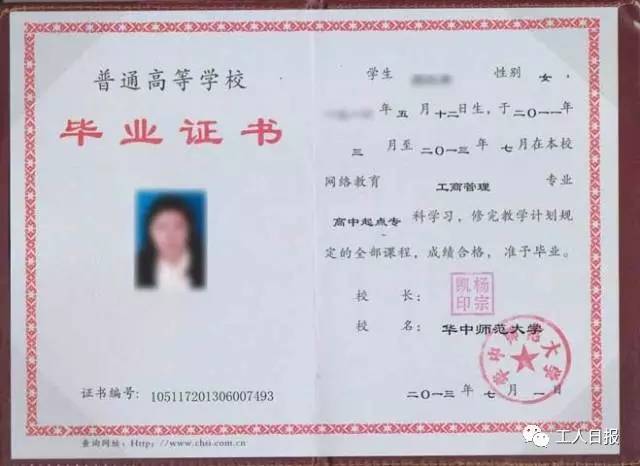 普通高等学校
毕业证书
证书编号: 105117201306007493
查询网址: Http://www.chsi.com.cn
学生 性别 女，
年 五 月 十二 日生，于 二〇一一 年
三 月至 二〇一三 年 七 月在本校
网络教育 工商管理 专业
高中起点专 科学习，修完教学计划规
定的全部课程，成绩合格，准予毕业。
校 长: 杨宗凯印
校 名: 华中师范大学
华中师范大学
二〇一三 年 七 月 一 日
工人日报